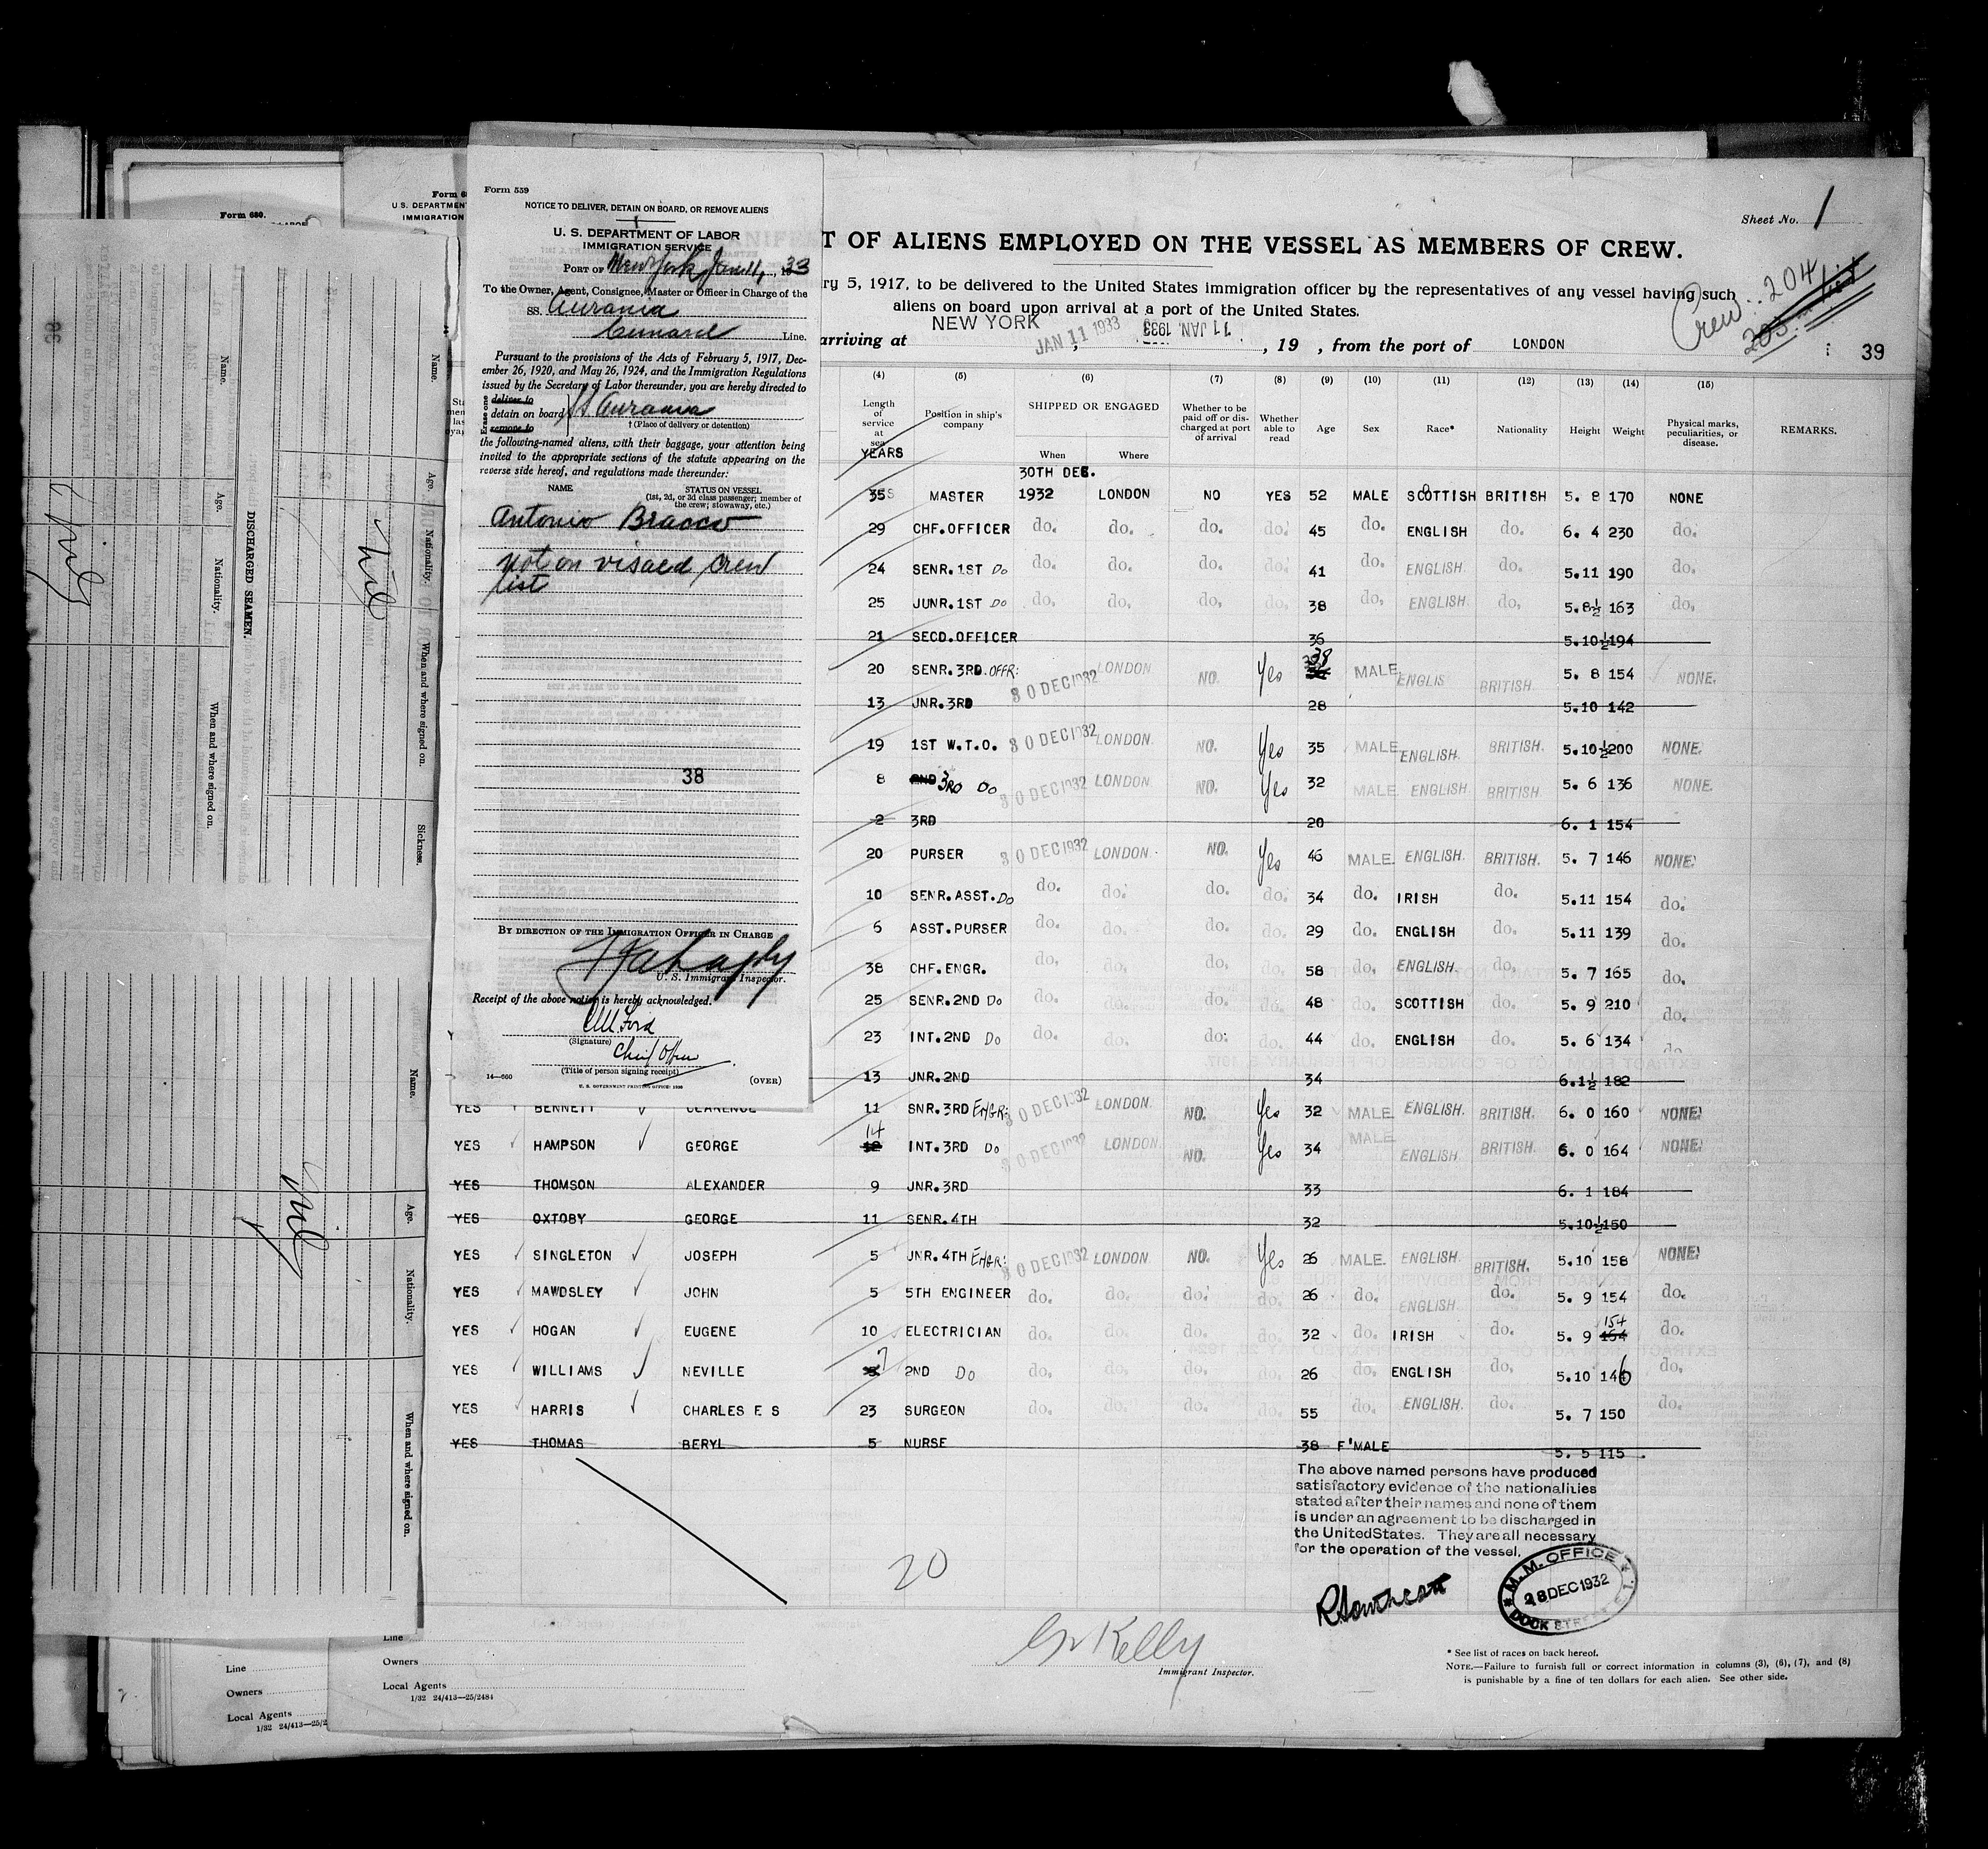 Form 559
NOTICE TO DELIVER, DETAIN ON BOARD, OR REMOVE ALIENS
U. S. DEPARTMENT OF LABOR
IMMIGRATION SERVICE
PORT OF New York Jan 11, 1933
To the Owner, Agent, Consignee, Master or Officer in Charge of the
SS. Aurania
Cunard Line.
Pursuant to the provisions of the Acts of February 5, 1917, Dec-
ember 26, 1920, and May 26, 1924, and the Immigration Regulations
issued by the Secretary of Labor thereunder, you are hereby directed to
Erase one
deliver to
detain on board SS Aurania
remove to
† (Place of delivery or detention)
the following-named aliens, with their baggage, your attention being
invited to the appropriate sections of the statute appearing on the
reverse side hereof, and regulations made thereunder:
NAME STATUS ON VESSEL
(1st, 2d, or 3d class passenger; member of
the crew; stowaway, etc.)
Antonio Bracco
not on visaed crew
list
38
BY DIRECTION OF THE IMMIGRATION OFFICER IN CHARGE
U. S. Immigrant Inspector.
Receipt of the above notice is hereby acknowledged.
Ford
(Signature)
Chief Offr
(Title of person signing receipt)
14—660 U. S. GOVERNMENT PRINTING OFFICE: 1930 (OVER)
Sheet No. 1
T OF ALIENS EMPLOYED ON THE VESSEL AS MEMBERS OF CREW.
ry 5, 1917, to be delivered to the United States immigration officer by the representatives of any vessel having such
aliens on board upon arrival at a port of the United States.
Crew 204
203
39
arriving at NEW YORK JAN 11 1933, 11 JAN. 1933, 19 , from the port of LONDON
(4) (5) (6) (7) (8) (9) (10) (11) (12) (13) (14) (15)
Length of service at sea YEARS
Position in ship's company
SHIPPED OR ENGAGED
When Where
Whether to be paid off or discharged at port of arrival
Whether able to read
Age Sex Race* Nationality Height Weight
Physical marks, peculiarities, or disease.
REMARKS.
30TH DEC.
35 MASTER 1932 LONDON NO YES 52 MALE SCOTTISH BRITISH 5. 8 170 NONE
29 CHF.OFFICER do. do. do. do. 45 do. ENGLISH do. 6. 4 230 do.
24 SENR.1ST DO do. do. do. do. 41 do. ENGLISH do. 5.11 190 do.
25 JUNR.1ST DO do. do. do. do. 38 do. ENGLISH. do. 5.8½ 163 do.
21 SECD.OFFICER 36 5.10½ 194
20 SENR.3RD.OFFR: 30 DEC 1932 LONDON NO. Yes 38 MALE ENGLIS BRITISH 5. 8 154 NONE.
13 JNR.3RD 28 5.10 142
19 1ST W.T.O. 30 DEC 1932 LONDON. NO. Yes 35 MALE ENGLISH. BRITISH. 5.10½ 200 NONE.
8 2ND 3RD DO 30 DEC 1932 LONDON. NO. Yes 32 MALE ENGLISH. BRITISH 5. 6 136 NONE.
2 3RD 20 6. 1 154
20 PURSER 30 DEC 1932 LONDON. NO. Yes 46 MALE. ENGLISH. BRITISH. 5. 7 146 NONE.
10 SENR.ASST.DO do. do. do. do. 34 do. IRISH do. 5.11 154 do.
6 ASST.PURSER do. do. do. do. 29 do. ENGLISH do. 5.11 139 do.
38 CHF.ENGR. do. do. do. do. 58 do. ENGLISH. do. 5. 7 165 do.
25 SENR.2ND DO do. do. do. do. 48 do. SCOTTISH do. 5. 9 210 do.
23 INT.2ND DO do. do. do. do. 44 do. ENGLISH do. 5. 6 134 do
13 JNR.2ND 34 6.1½ 182
YES BENNETT CLARENCE 11 SNR.3RD ENGR: 30 DEC 1932 LONDON. NO. Yes 32 MALE ENGLISH. BRITISH. 6. 0 160 NONE.
YES HAMPSON GEORGE 14 12 INT.3RD DO 30 DEC 1932 LONDON. NO. Yes 34 MALE ENGLISH. BRITISH. 6. 0 164 NONE.
YES THOMSON ALEXANDER 9 JNR.3RD 33 6. 1 184
YES OXTOBY GEORGE 11 SENR.4TH 32 5.10½ 150
YES SINGLETON JOSEPH 5 JNR.4TH ENGR: 30 DEC 1932 LONDON. NO. Yes 26 MALE. ENGLISH. BRITISH. 5.10 158 NONE.
YES MAWDSLEY JOHN 5 5TH ENGINEER do. do. do. do. 26 do. ENGLISH do. 5. 9 154 do.
YES HOGAN EUGENE 10 ELECTRICIAN do. do. do. do. 32 do. IRISH do. 5. 9 154 do.
YES WILLIAMS NEVILLE 7 2ND DO do. do. do. do. 26 do. ENGLISH do. 5.10 146 do.
YES HARRIS CHARLES E S 23 SURGEON do. do. do. do. 55 do. ENGLISH. do. 5. 7 150 do.
YES THOMAS BERYL 5 NURSE 38 F'MALE 5. 5 115
The above named persons have produced
satisfactory evidence of the nationalities
stated after their names and none of them
is under an agreement to be discharged in
the United States. They are all necessary
for the operation of the vessel.
M. M. OFFICE
28 DEC 1932
DOCK STREET E.1.
20
Kelly
Immigrant Inspector.
* See list of races on back hereof.
NOTE.—Failure to furnish full or correct information in columns (3), (6), (7), and (8)
is punishable by a fine of ten dollars for each alien. See other side.
Line
Owners
Local Agents
1/32 24/413—25/2484
Line
Owners
Local Agents
1/32 24/413—25/2
Form 680.
U. S. DEPARTMENT
IMMIGRATION
Name. Age. Nationality. When and where signed on. Sickness.
DISCHARGED SEAMEN.
Name. Age. Nationality. When and where signed on.
Name. Age. Nationality. When and where signed on.